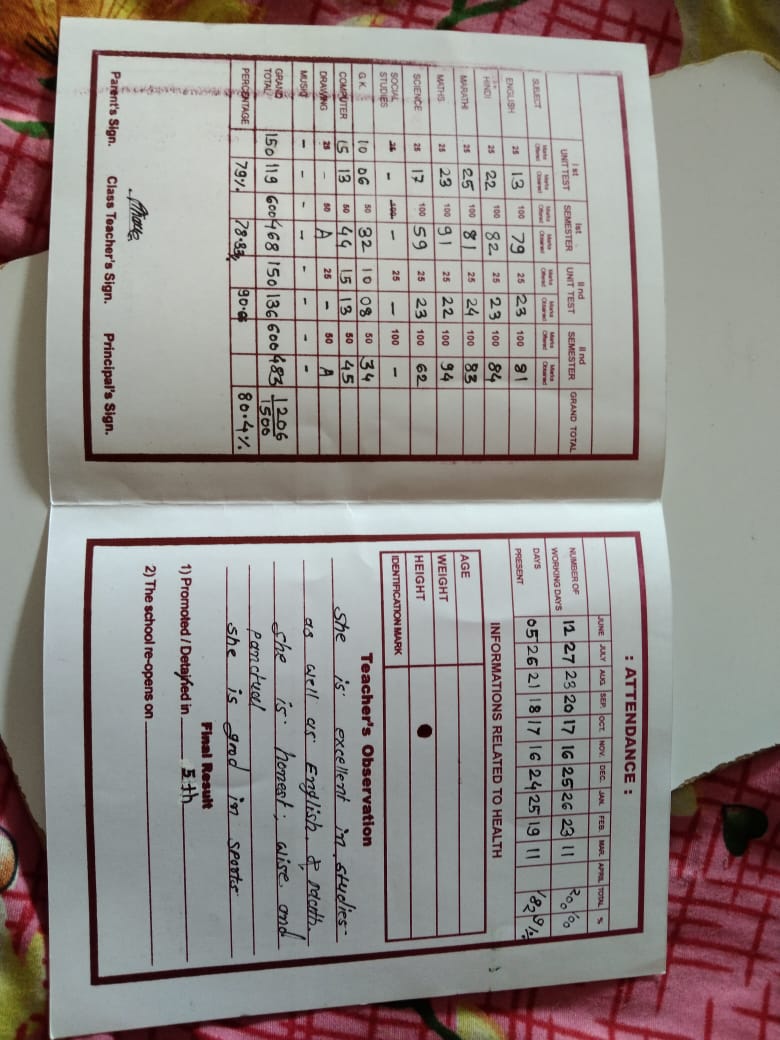 SUBJECT Ist UNIT TEST Ist SEMESTER II nd UNIT TEST II nd SEMESTER GRAND TOTAL
Marks Offered Marks Obtained Marks Offered Marks Obtained Marks Offered Marks Obtained Marks Offered Marks Obtained
ENGLISH 25 13 100 79 25 23 100 81
HINDI 25 22 100 82 25 23 100 84
MARATHI 25 25 100 81 25 24 100 83
MATHS 25 23 100 91 25 22 100 94
SCIENCE 25 17 100 59 25 23 100 62
SOCIAL STUDIES 25 - 100 - 25 - 100 -
G.K. 10 06 50 32 10 08 50 34
COMPUTER 15 13 50 44 15 13 50 45
DRAWING 25 - 50 A 25 - 50 A
MUSIC - - - - - - - -
GRAND TOTAL 150 119 600 468 150 136 600 483 1206 1500
PERCENTAGE 79% 78.83% 90.6 80.4%
Parent's Sign. Class Teacher's Sign. Principal's Sign.
: ATTENDANCE :
JUNE JULY AUG. SEP. OCT. NOV. DEC. JAN. FEB. MAR. APRIL TOTAL %
NUMBER OF WORKING DAYS 12 27 23 20 17 16 25 26 23 11
DAYS PRESENT 05 26 21 18 17 16 24 25 19 11
INFORMATIONS RELATED TO HEALTH
AGE
WEIGHT
HEIGHT
IDENTIFICATION MARK
Teacher's Observation
She is excellent in studies
as well as English & Math
She is honest, wise and
panctual
she is good in sports
Final Result
1) Promoted / Detained in 5th
2) The school re-opens on